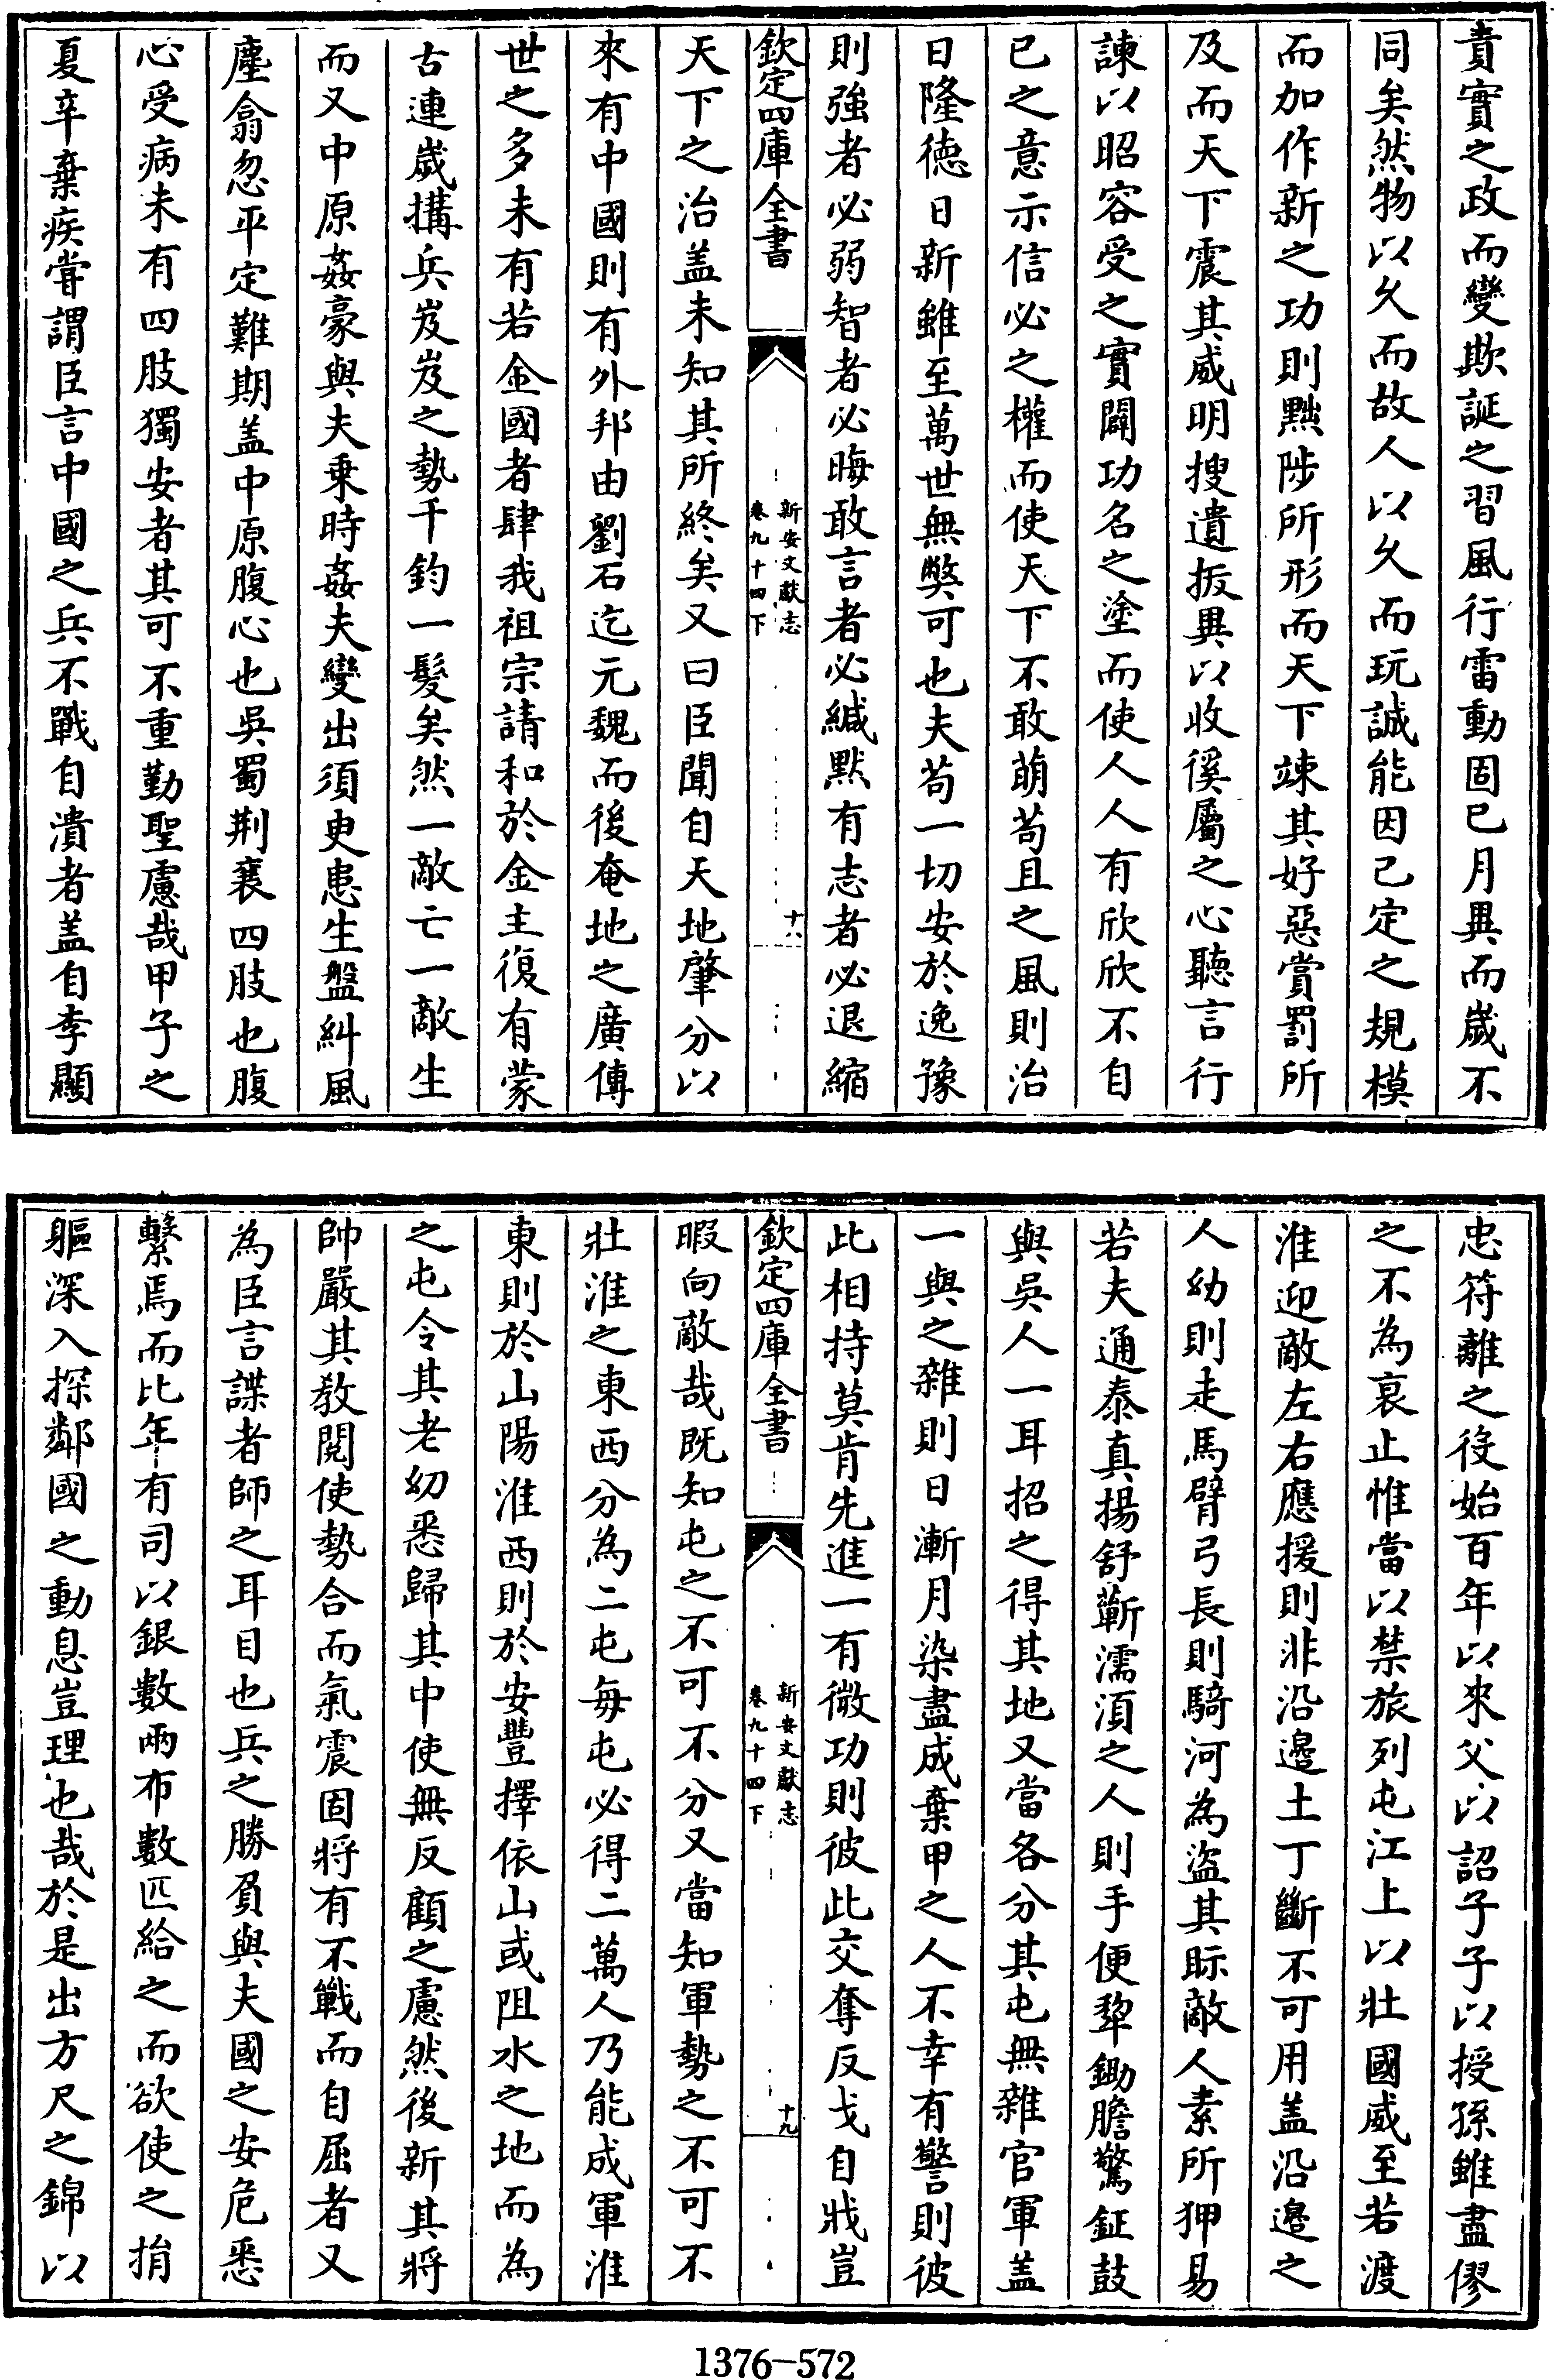 責實之政而變欺誕之習風行雷動固已月異而歲不
同矣然物以久而故人以久而玩誠能因已定之規模
而加作新之功則黜陟所形而天下竦其好惡賞罰所
及而天下震其威明搜遺拔異以收徯屬之心聽言行
諫以昭容受之實闢功名之塗而使人人有欣欣不自
已之意示信必之權而使天下不敢萌苟且之風則治
日隆徳日新雖至萬世無弊可也夫苟一切安於逸豫
則強者必弱智者必晦敢言者必緘默有志者必退縮
欽定四庫全書
新安文獻志
卷九十四下
十八
天下之治盖未知其所終矣又曰臣聞自天地肇分以
來有中國則有外邦由劉石迄元魏而後奄地之廣傳
世之多未有若金國者肆我祖宗請和於金主復有蒙
古連歲搆兵岌岌之勢千鈞一髮矣然一敵亡一敵生
而又中原姦豪與夫乗時姦夫變出須臾患生盤糾風
塵翕忽平定難期盖中原腹心也吳蜀荆襄四肢也腹
心受病未有四肢獨安者其可不重勤聖慮哉甲子之
夏辛棄疾嘗謂臣言中國之兵不戰自潰者盖自李顯
忠符離之役始百年以來父以詔子子以授孫雖盡僇
之不為哀止惟當以禁旅列屯江上以壯國威至若渡
淮迎敵左右應援則非沿邉土丁斷不可用盖沿邉之
人幼則走馬臂弓長則騎河為盜其眎敵人素所狎易
若夫通泰真揚舒蘄濡湏之人則手便犂鋤膽驚鉦鼓
與吳人一耳招之得其地又當各分其屯無雜官軍盖
一與之雜則日漸月染盡成棄甲之人不幸有警則彼
此相持莫肯先進一有微功則彼此交奪反戈自戕豈
欽定四庫全書
新安文獻志
卷九十四下
十九
暇向敵哉既知屯之不可不分又當知軍勢之不可不
壯淮之東西分為二屯每屯必得二萬人乃能成軍淮
東則於山陽淮西則於安豐擇依山或阻水之地而為
之屯令其老幼悉歸其中使無反顧之慮然後新其將
帥嚴其教閱使勢合而氣震固將有不戰而自屈者又
為臣言諜者師之耳目也兵之勝負與夫國之安危悉
繫焉而比年有司以銀數兩布數匹給之而欲使之捐
軀深入探鄰國之動息豈理也哉於是出方尺之錦以
1376-572